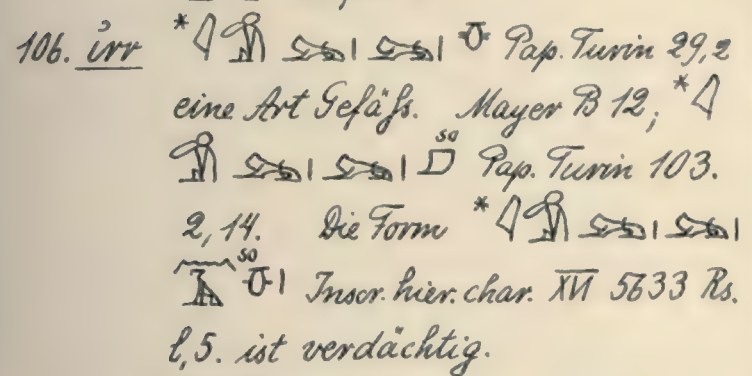 106. ỉrr * 𓇋𓀁𓃭𓏤𓃭𓏤 Pap. Turin 29,2
eine Art Gefäß. Mayer B 12; * 𓇋
𓀁𓃭𓏤𓃭𓏤 so Pap. Turin 103.
2,14. Die Form * 𓇋𓀁𓃭𓏤𓃭𓏤
so Inscr. hier. char. XVI 5633 Rs.
l,5. ist verdächtig.